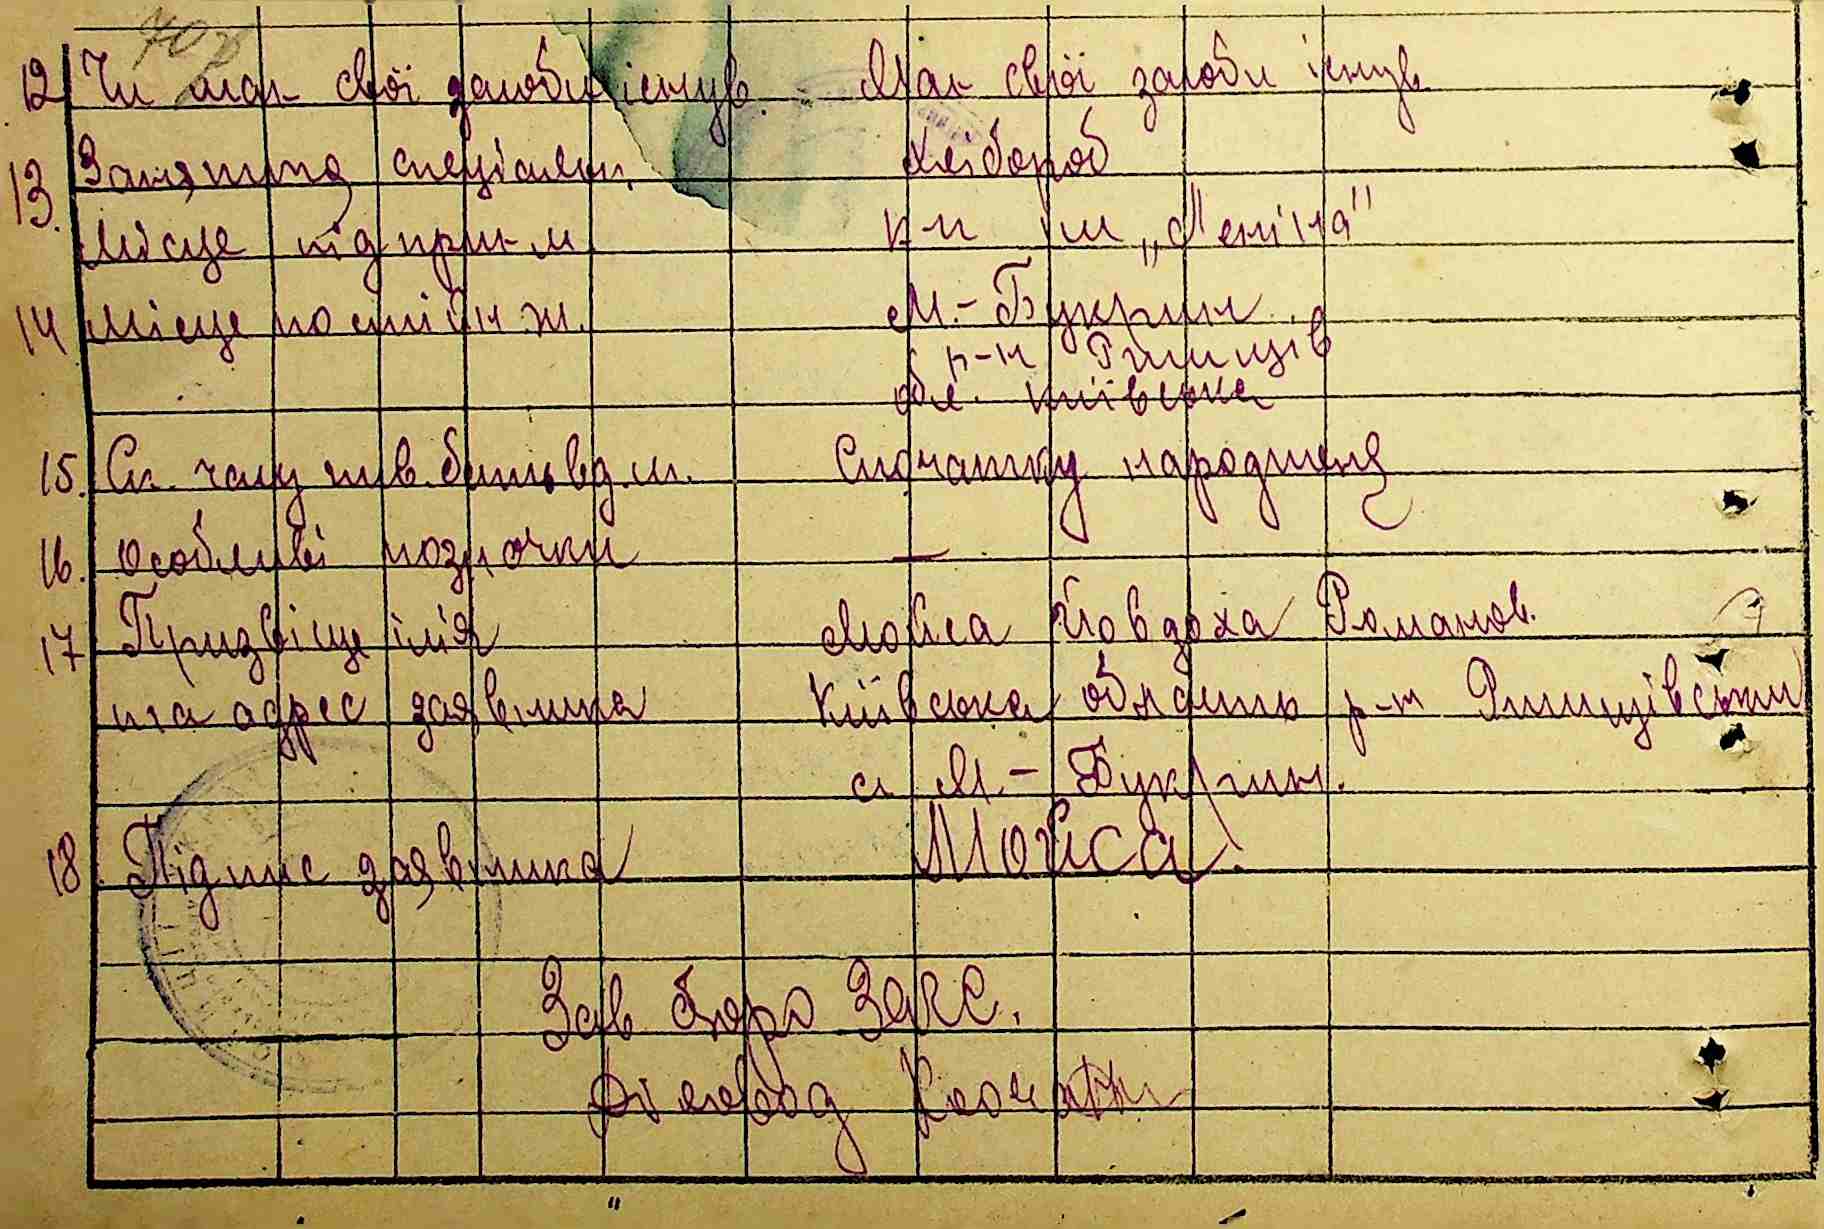 12 Чи має свої засоби існув. Має свої засоби існув.
13. Заняття спеціальн. Хлібороб
Місце підприєм к-п ім „Леніна"
14 Місце постійн. ж. М.-Букрин
р-н Ржищів
обл. Київська
15. Ск. часу жив. безвид. м. Спочатку народженя
16. Особливі позначки —
17 Призвіще імя Мойса Йовдоха Романов.
та адрес заявника Київська область р-н Ржищівськи
с. М.- Букрин.
18. Підпис заявника Мойса.
Зав бюро ЗАГС.
Діловод